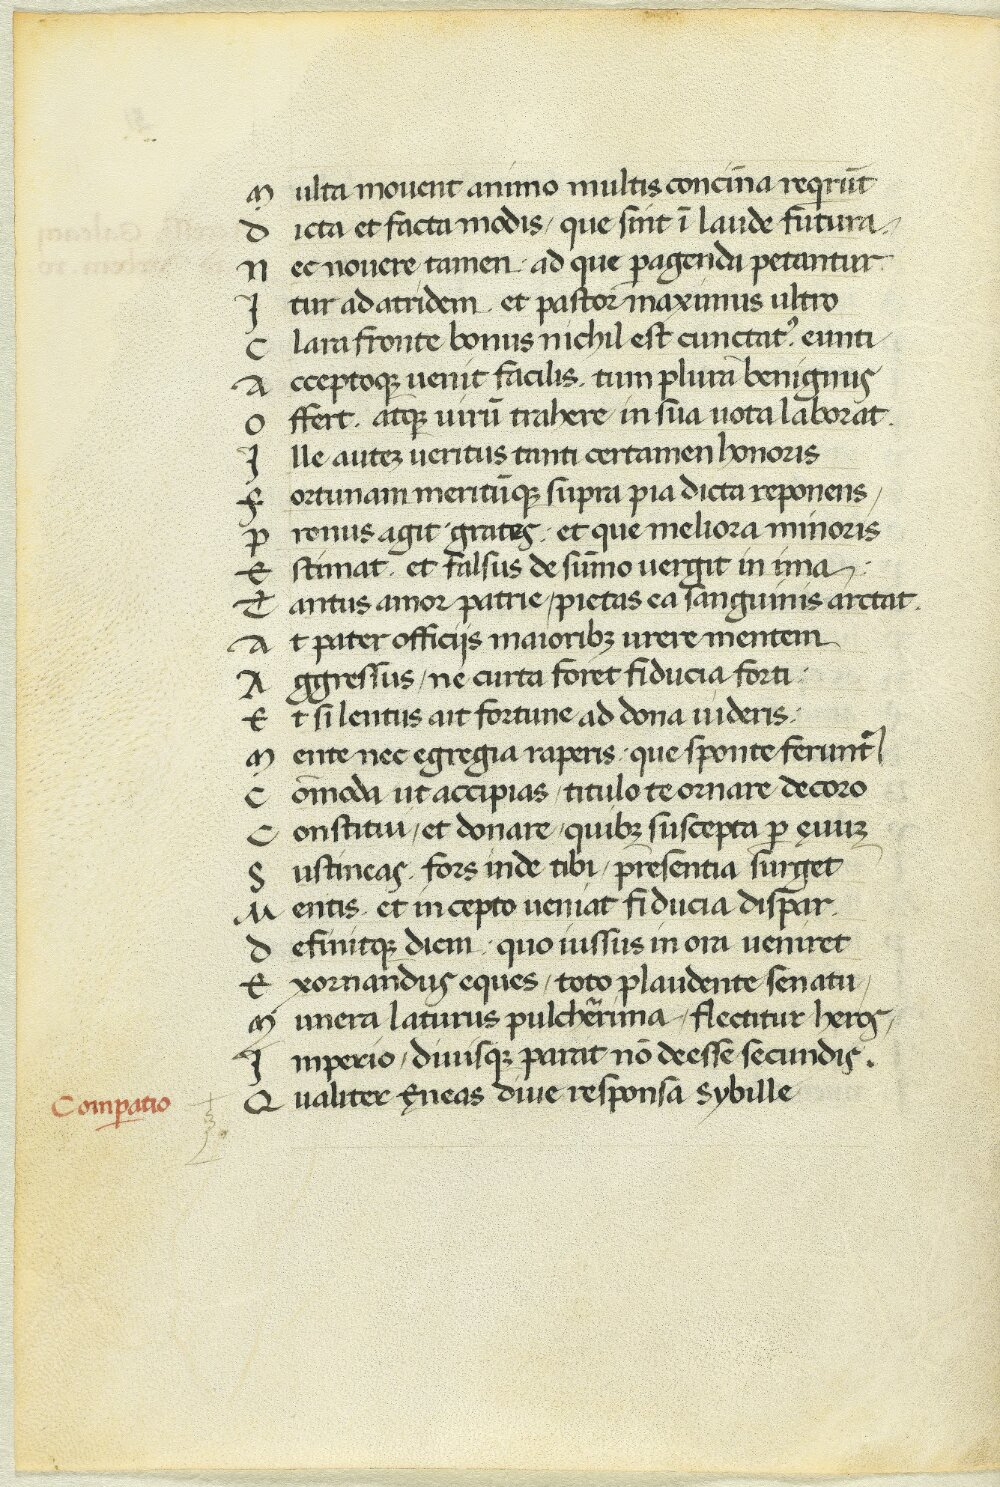 M ulta mouent animo multis concīna reqrūt
D icta et facta modis / que sint ī laude futura
N ec nouere tamen · ad que pagenda petantur
J tur ad atridem · et pastor maximus ultro
C lara fronte bonus nichil est cunctat᾽ eunti
A cceptoqꝫ uenit facilis · tum plura benignus
O ffert · atqꝫ uirū trahere in sua uota laborat ·
J lle auteꝫ ueritus tanti certamen honoris
F ortunam meritūqꝫ supra pia dicta reponens /
P ronus agit grates · et que meliora minoris
E stimat · et falsus de sūmo uergit in ima
T antus amor patrie / pietas ea sanguinis arctat ·
A t pater officijs maioribꝫ urere mentem
A ggressus / ne curta foret fiducia forti :
E t si lentus ait fortune ad dona uideris :
M ente nec egregia raperis · que sponte ferunt᾽
C ōmoda ut accipias / titulo te ornare decoro
C onstitui / et donare / quibꝫ suscepta ꝑ ęuuꝫ
S ustineas · fors inde tibi / presentia surget
M entis · et incepto ueniat fiducia dispar ·
D efinitqꝫ diem · quo iussus in ora ueniret
E xornandus eques / toto plaudente senatu /
M unera laturus pulcherrima / flectitur heros /
J mperio / diuisqꝫ parat nō deesse secundis .
Compatio Q ualiter Ęneas diue responsa Sybille